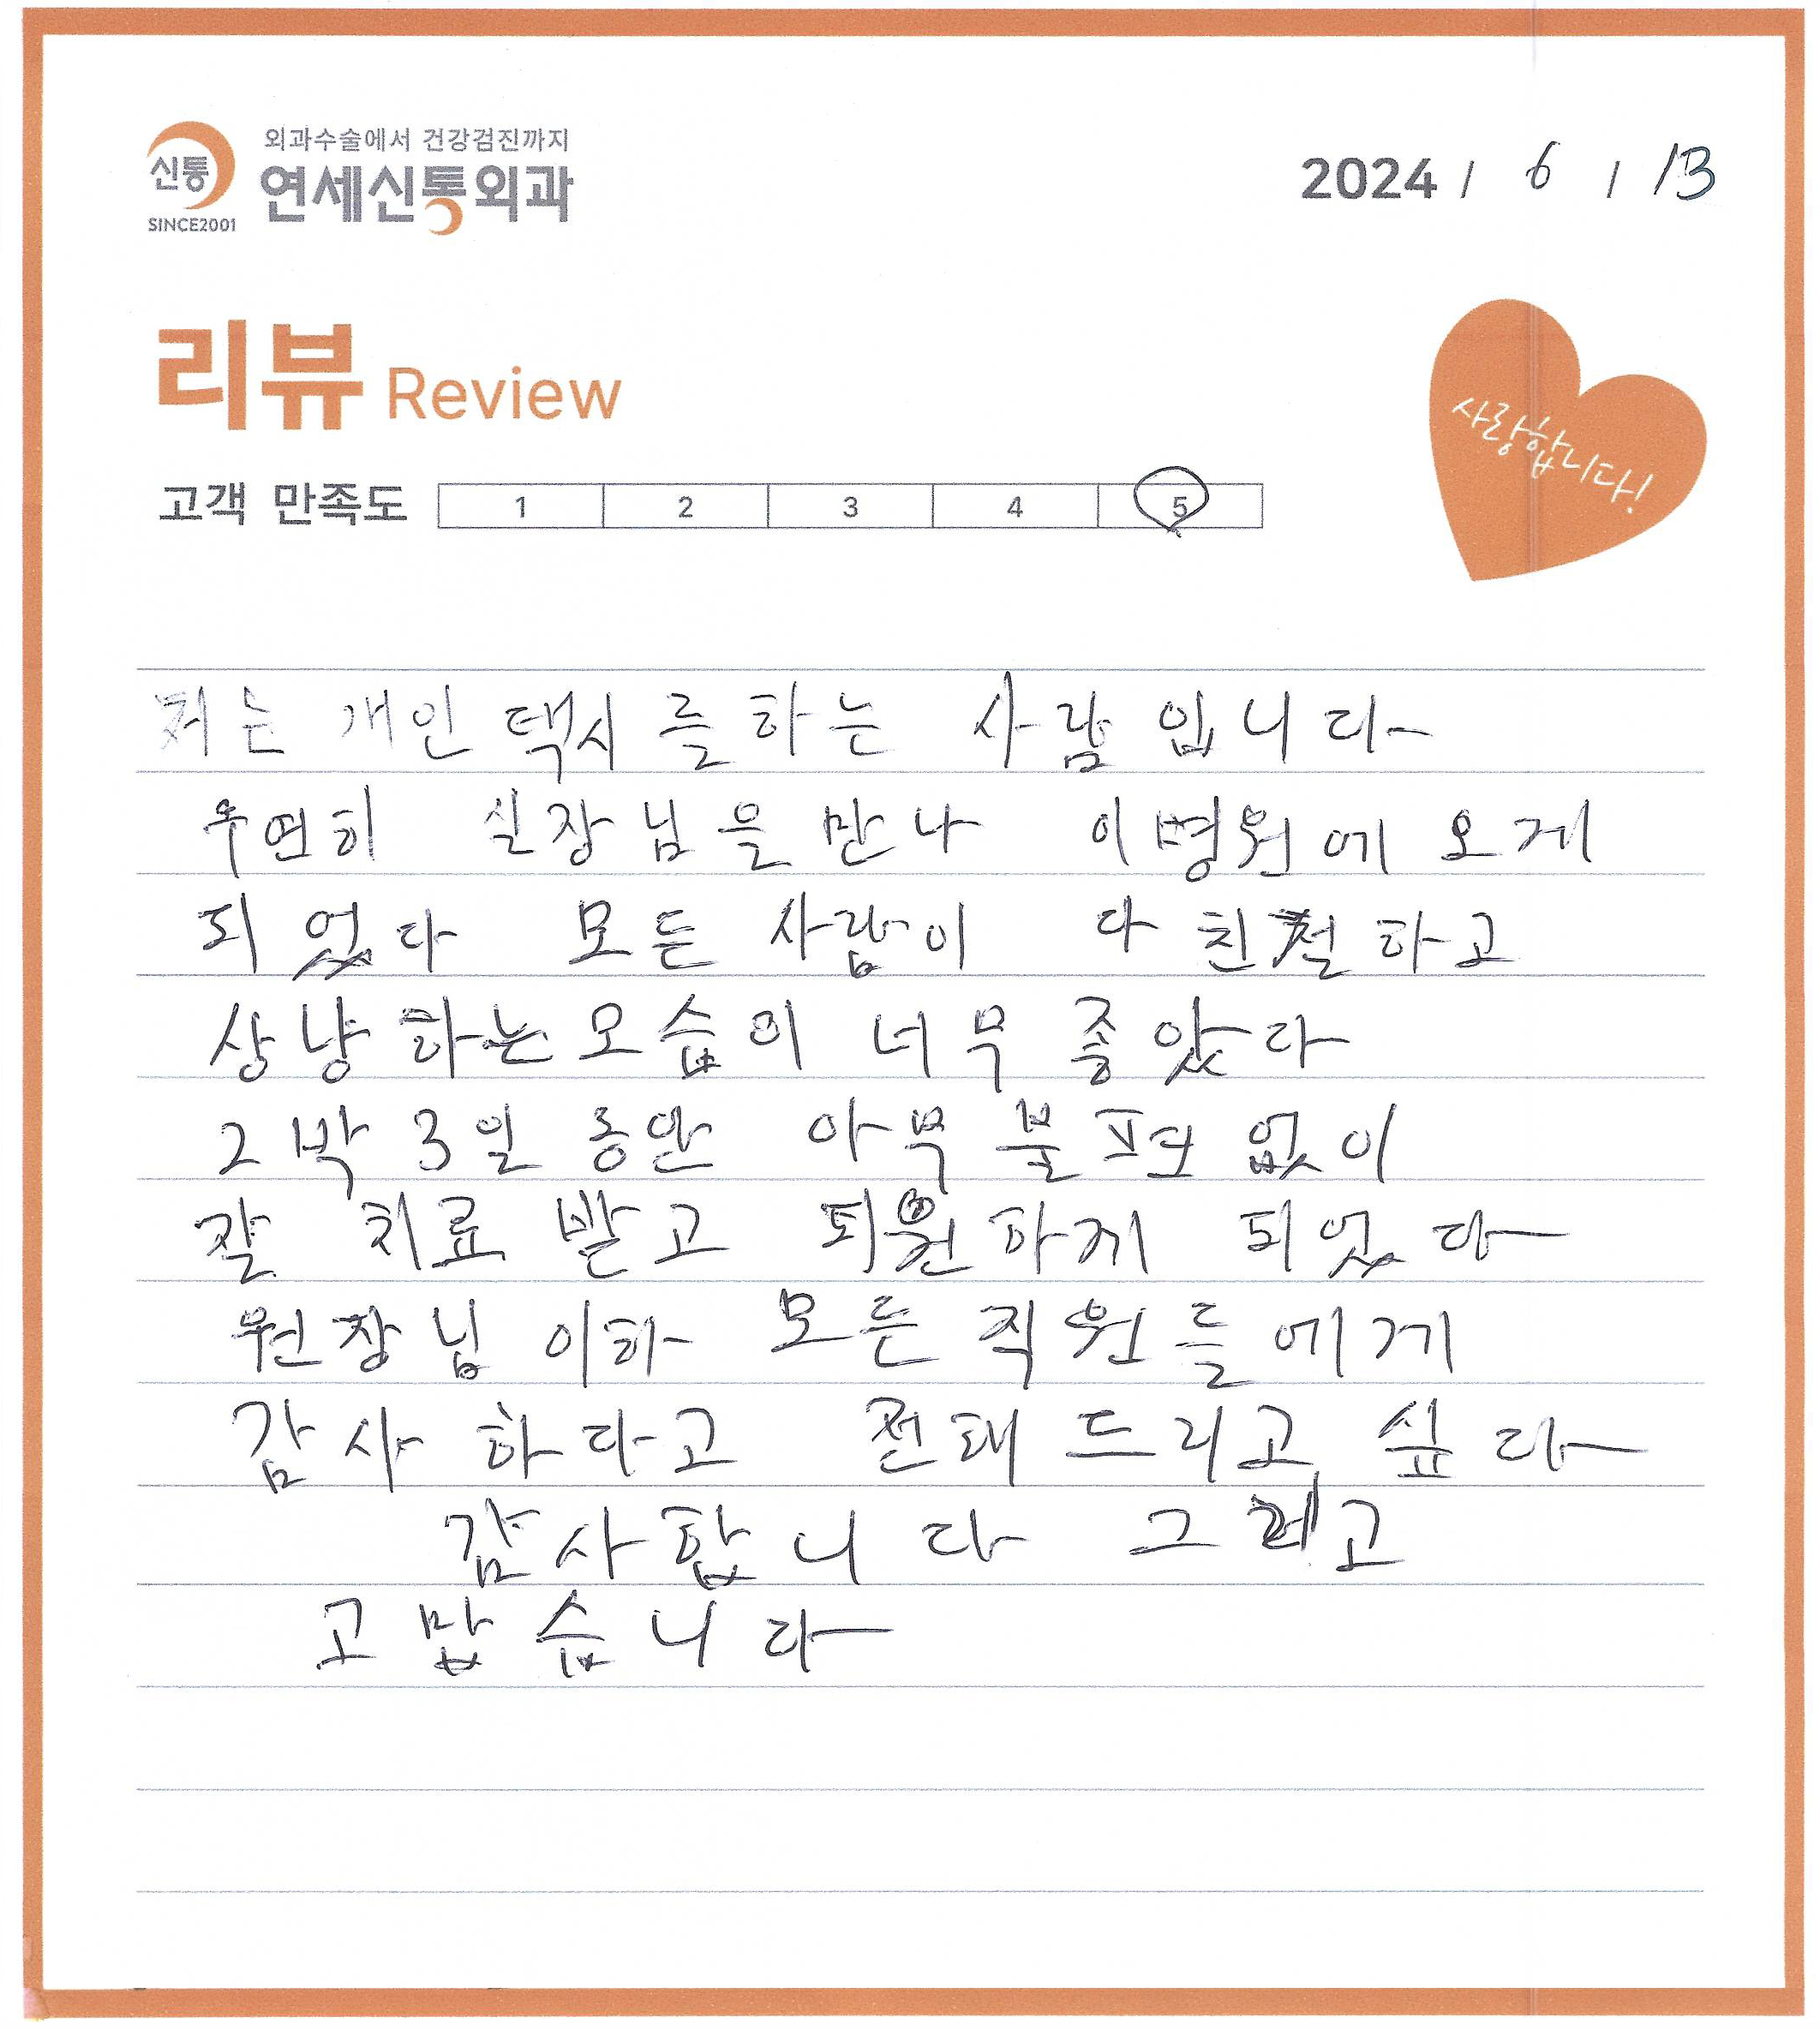 외과수술에서 건강검진까지
신통
연세신통외과
SINCE2001
2024 / 6 / 13
리뷰 Review
사랑합니다!
고객 만족도 1 2 3 4 5
저는 개인 택시를 하는 사람 입니다
우연히 실장님을 만나 이병원에 오게
되었다 모든 사람이 다 친절하고
상냥하는모습이 너무 좋았다
2박 3일 동안 아무 불편 없이
잘 치료 받고 퇴원하게 되었다
원장님 이하 모든 직원들에게
감사 하다고 전해 드리고 싶다
감사합니다 그리고
고맙습니다